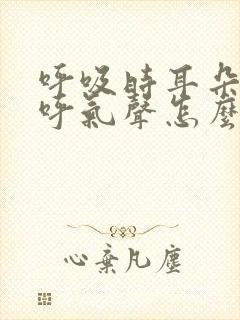 呼吸時耳朵
呼氣聲怎麼
心棄凡塵